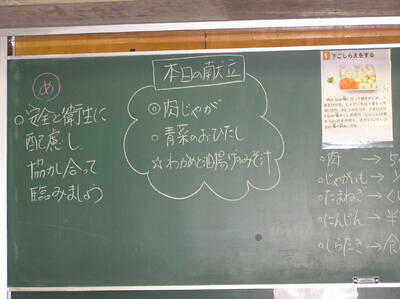 め
○安全と衛生に
配慮し
協力し合って
臨みましょう
本日の献立
◎肉じゃが
○青菜のおひたし
☆わかめと油揚げのみそ汁
1 下ごしらえをする
○肉 → 5
○じゃがいも →
○たまねぎ → く
○にんじん → 半
○しらたき → 食